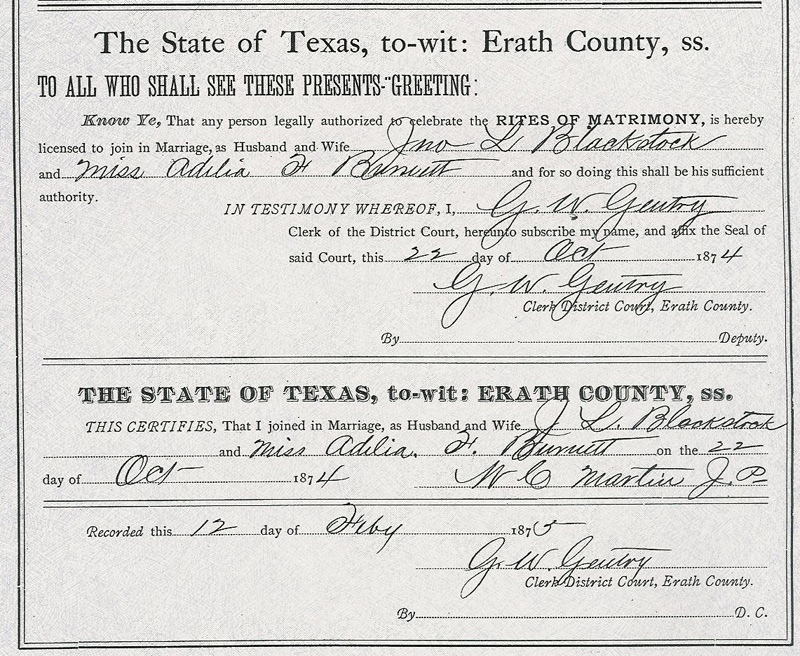 The State of Texas, to-wit: Erath County, ss.
TO ALL WHO SHALL SEE THESE PRESENTS-GREETING:
Know Ye, That any person legally authorized to celebrate the RITES OF MATRIMONY, is hereby
licensed to join in Marriage, as Husband and Wife Jno L Blackstock
and Miss Adilia F Burnett and for so doing this shall be his sufficient
authority.
IN TESTIMONY WHEREOF, I, G. W. Gentry
Clerk of the District Court, hereunto subscribe my name, and affix the Seal of
said Court, this 22 day of Oct 1874
G. W. Gentry
Clerk District Court, Erath County.
By Deputy.
THE STATE OF TEXAS, to-wit: ERATH COUNTY, ss.
THIS CERTIFIES, That I joined in Marriage, as Husband and Wife J L. Blackstock
and Miss Adilia. F. Burnett on the 22
day of Oct 1874 W C Martin J. P
Recorded this 12 day of Feby 1875
G. W. Gentry
Clerk District Court, Erath County.
By D. C.